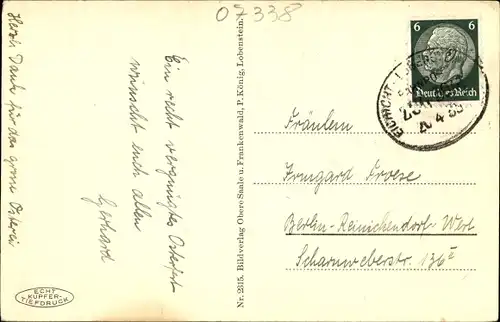 07338
Herzl. Dank für das grosse Osterei
Ein recht vergnügtes Osterfest
wünscht euch allen
Gerhard
ECHT
KUPFER-
TIEFDRUCK
Nr. 2315. Bildverlag Obere Saale u. Frankenwald, P. König, Lobenstein.
6 6
Deutsches Reich
EICHICHT
20 4
Fräulein
Irmgard Froese
Berlin-Reinickendorf West
Scharnweberstr. 136 I